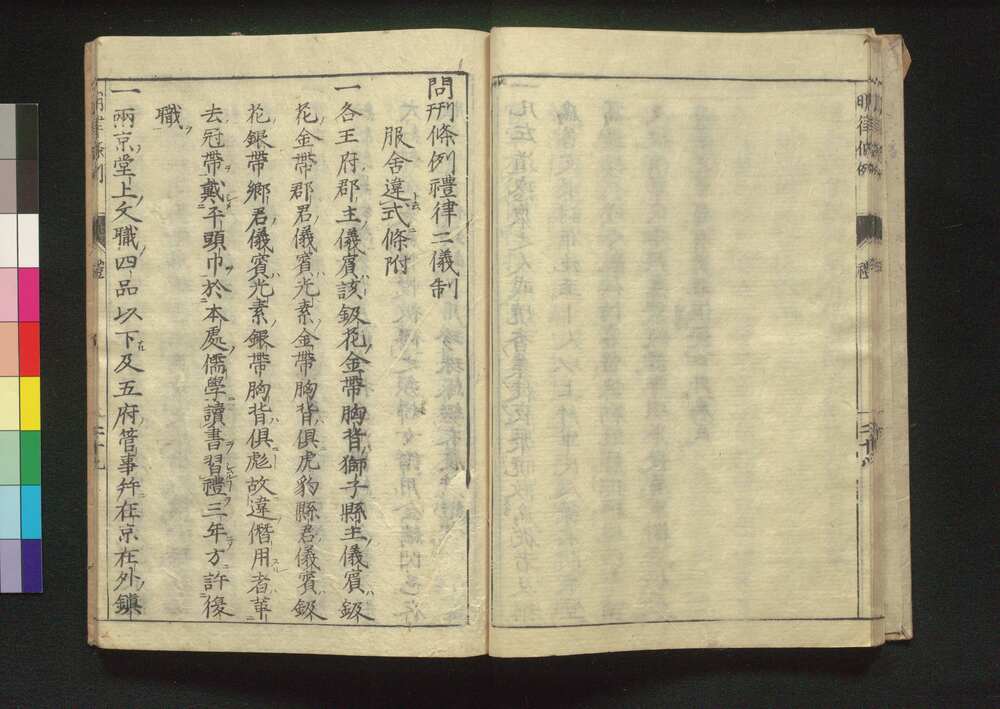 問刑條例禮律二儀制
服舍違式條附
一各王府郡主儀賓該鈒花金帶胸背獅子縣主儀賓鈒
花金帶郡君儀賓光素金帶胸背俱虎豹縣君儀賓鈒
花銀帶鄉君儀賓光素銀帶胸背俱彪故違僭用者革
去冠帶戴平頭巾於本處儒學讀書習禮三年方許復
職
一兩京堂上文職四品以下及五府管事并在京在外鎮